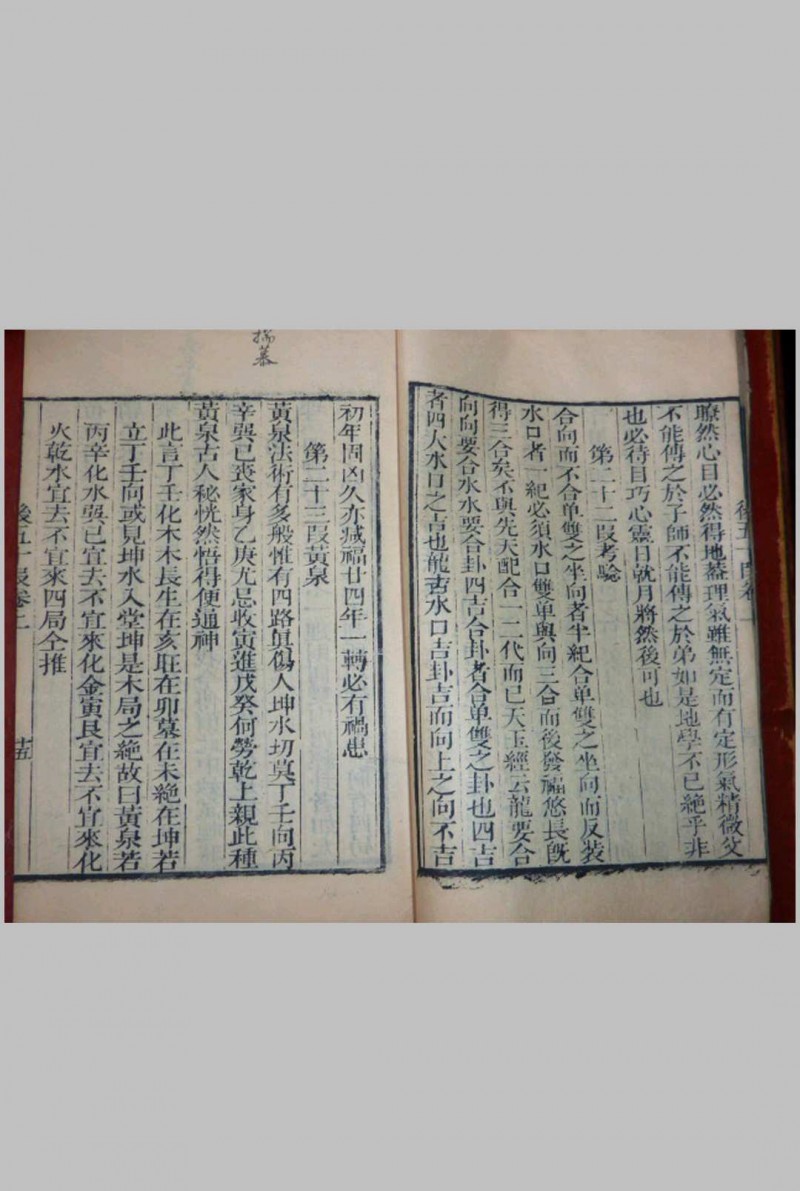 瞭然心目必然得地蓋理氣雖無定而有定形氣精微父
不能傳之於子師不能傳之於弟如是地學不已絶乎非
也必待目巧心靈日就月將然後可也
第二十二段考驗
合向而不合单雙之坐向者半紀合单雙之坐向而反装
水口者一紀必須水口雙单與向三合而後發福悠長旣
得三合矣不與先天配合一二代而已天玉經云龍要合
向向要合水水要合卦四吉合卦者合单雙之卦也四吉
者四大水口之吉也龍吉水口吉卦吉而向上之向不吉
初年固凶久亦减福廿四年一轉必有禍患
第二十三段黃泉
黃泉法術有多般惟有四路眞傷人坤水切莫丁壬向丙
辛巽巳喪家身乙庚尤忌收寅進戊癸何勞乾上親此種
黃泉古人秘恍然悟得便通神
此言丁壬化木木長生在亥旺在卯墓在未絶在坤若
立丁壬向或見坤水入堂坤是木局之絶故曰黃泉若
丙辛化水巽巳宜去不宜來化金寅艮宜去不宜來化
火乾水宜去不宜來四局仝推
後五十段卷上